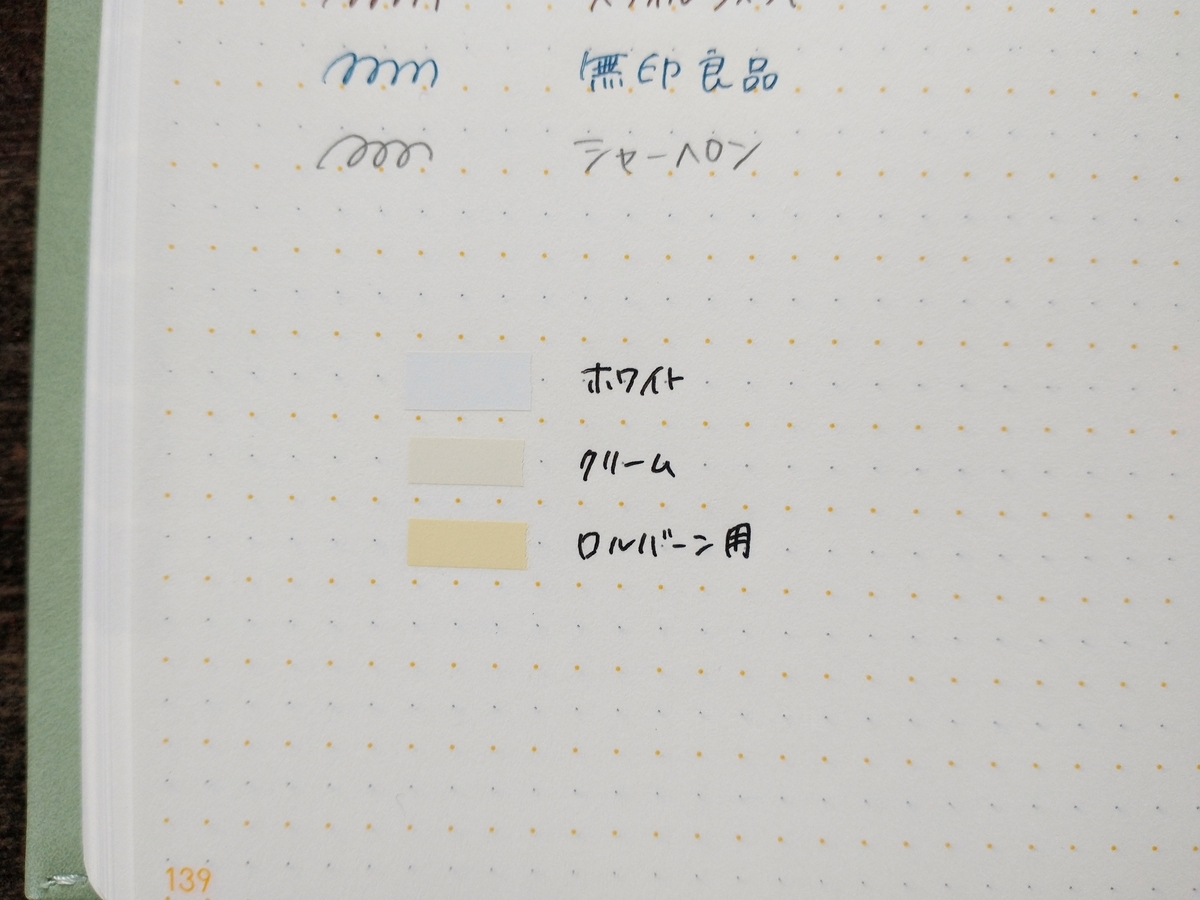 無印良品
シャーペロン
ホワイト
クリーム
ロルバーン用
139